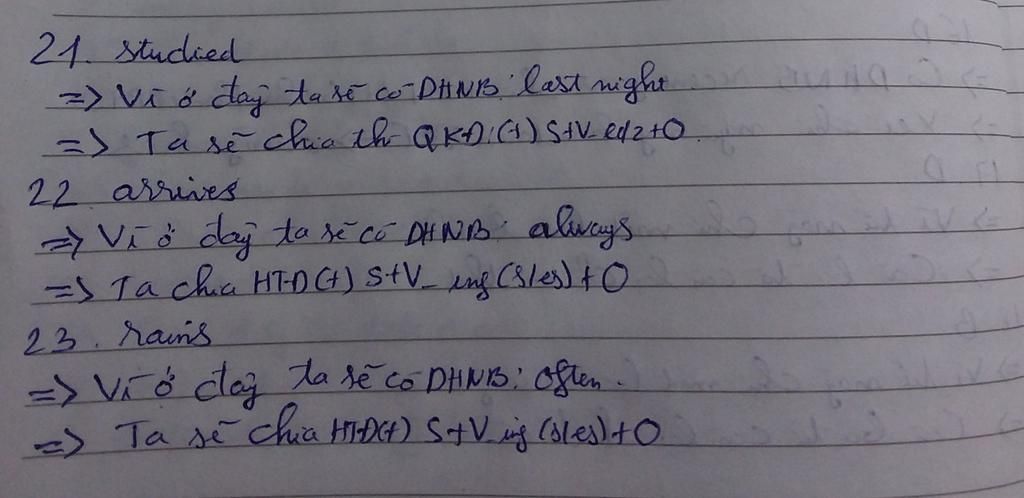 21. studied
=> Vì ở đây ta sẽ có DHNB: last night
=> Ta sẽ chia thì QKĐ: (+) S+V-ed2+O
22 arrives
=> Vì ở đây ta sẽ có DHNB: always
=> Ta chia HTĐ (+) S+V_ing (s/es) + O
23. rains
=> Vì ở đây ta sẽ có DHNB: Often.
=> Ta sẽ chia HTĐ(+) S+V_ing (s/es)+O